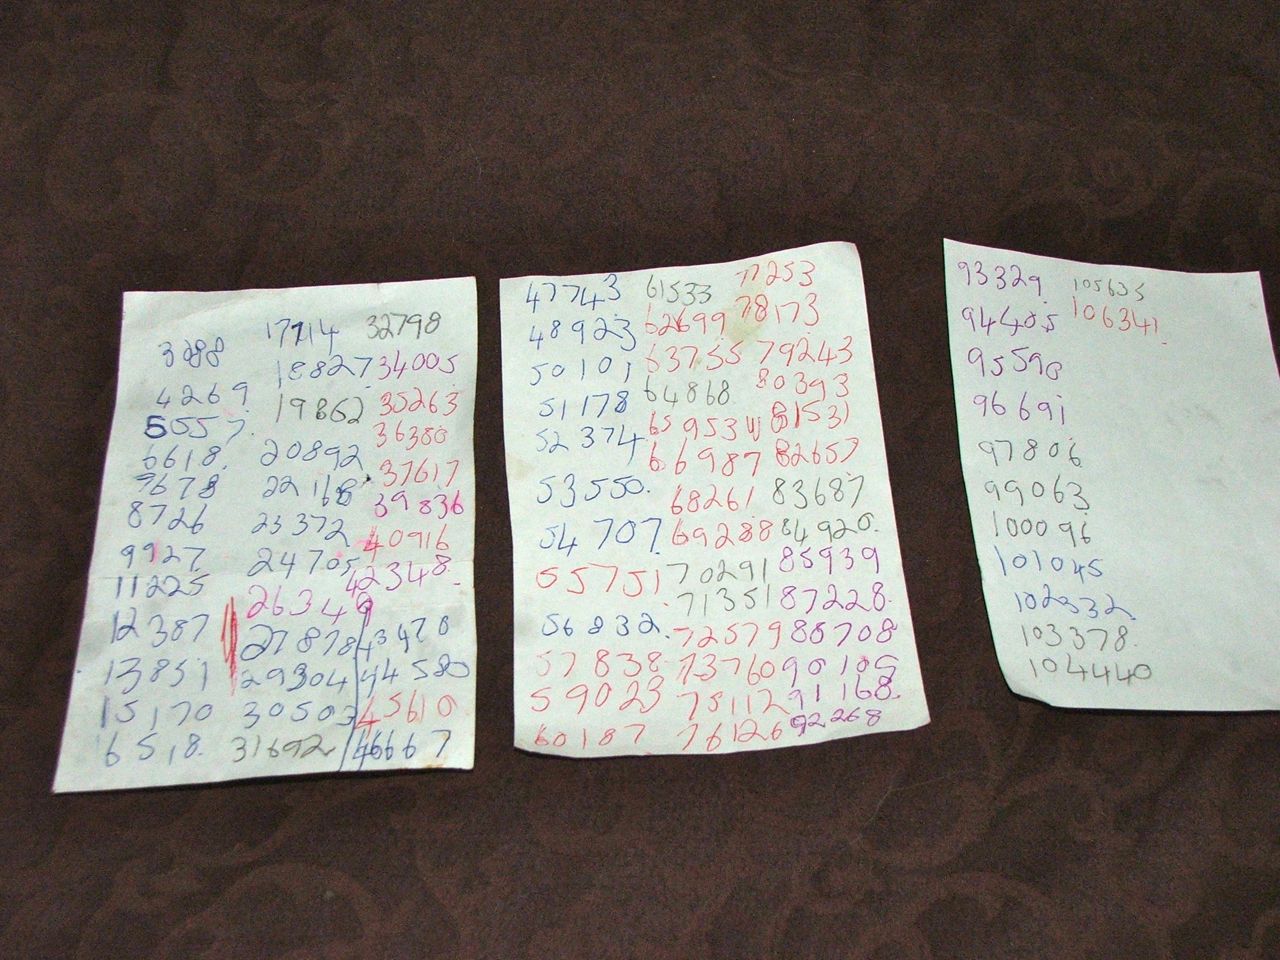 3288
4269
5557
6618
9678
8726
9927
11225
12387
13851
15170
16518
17714
18827
19862
20892
22168
23372
24705
26346
27878
29304
30503
31692
32798
34005
35263
36380
37617
39836
40916
42348
43478
44580
45610
46667
47743
48923
50101
51178
52374
53550
54707
55751
56832
57838
59023
60187
61533
62699
63755
64868
65953
66987
68261
69288
70291
71351
72579
73760
75112
76126
77253
78173
79243
80393
81531
82657
83687
84920
85939
87228
88708
90105
91168
92268
93329
94405
95598
96691
97806
99063
100096
101045
102332
103378
104440
105635
106341